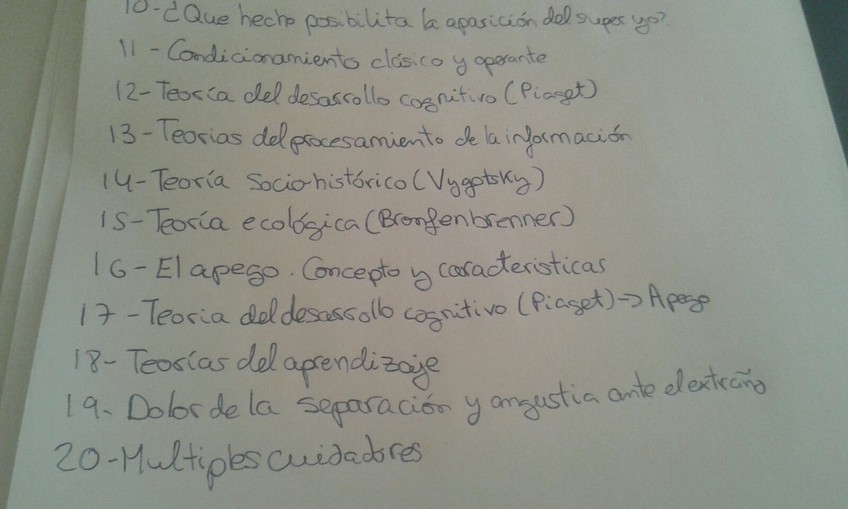 10-¿Que hecho posibilita la aparición del super yo?
11 - Condicionamiento clásico y operante
12-Teoría del desarrollo cognitivo (Piaget)
13-Teorias del procesamiento de la información
14-Teoría Socio-histórico (Vygotsky)
15-Teoría ecológica (Bronfenbrenner)
16-El apego. Concepto y caracteristicas
17-Teoria del desarrollo cognitivo (Piaget)-> Apego
18-Teorías del aprendizaje
19-Dolor de la separación y angustia ante el extraño
20-Multiples cuidadores